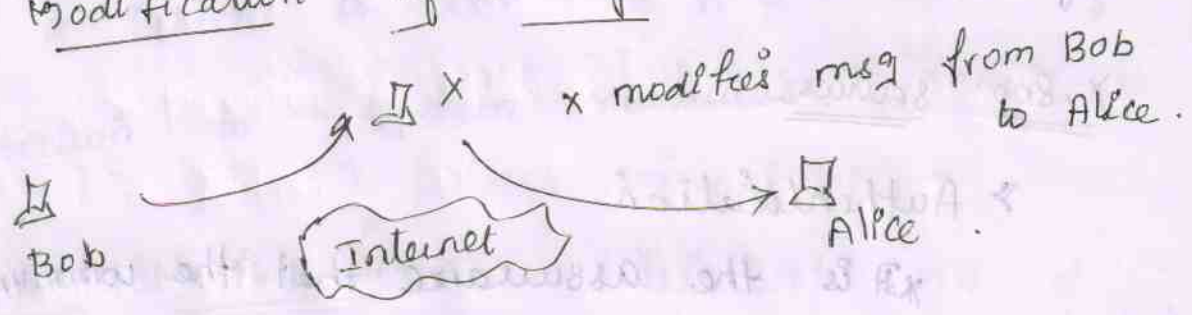 Modification
X
x modifies msg from Bob
to Alice.
Bob
Internet
Alice.